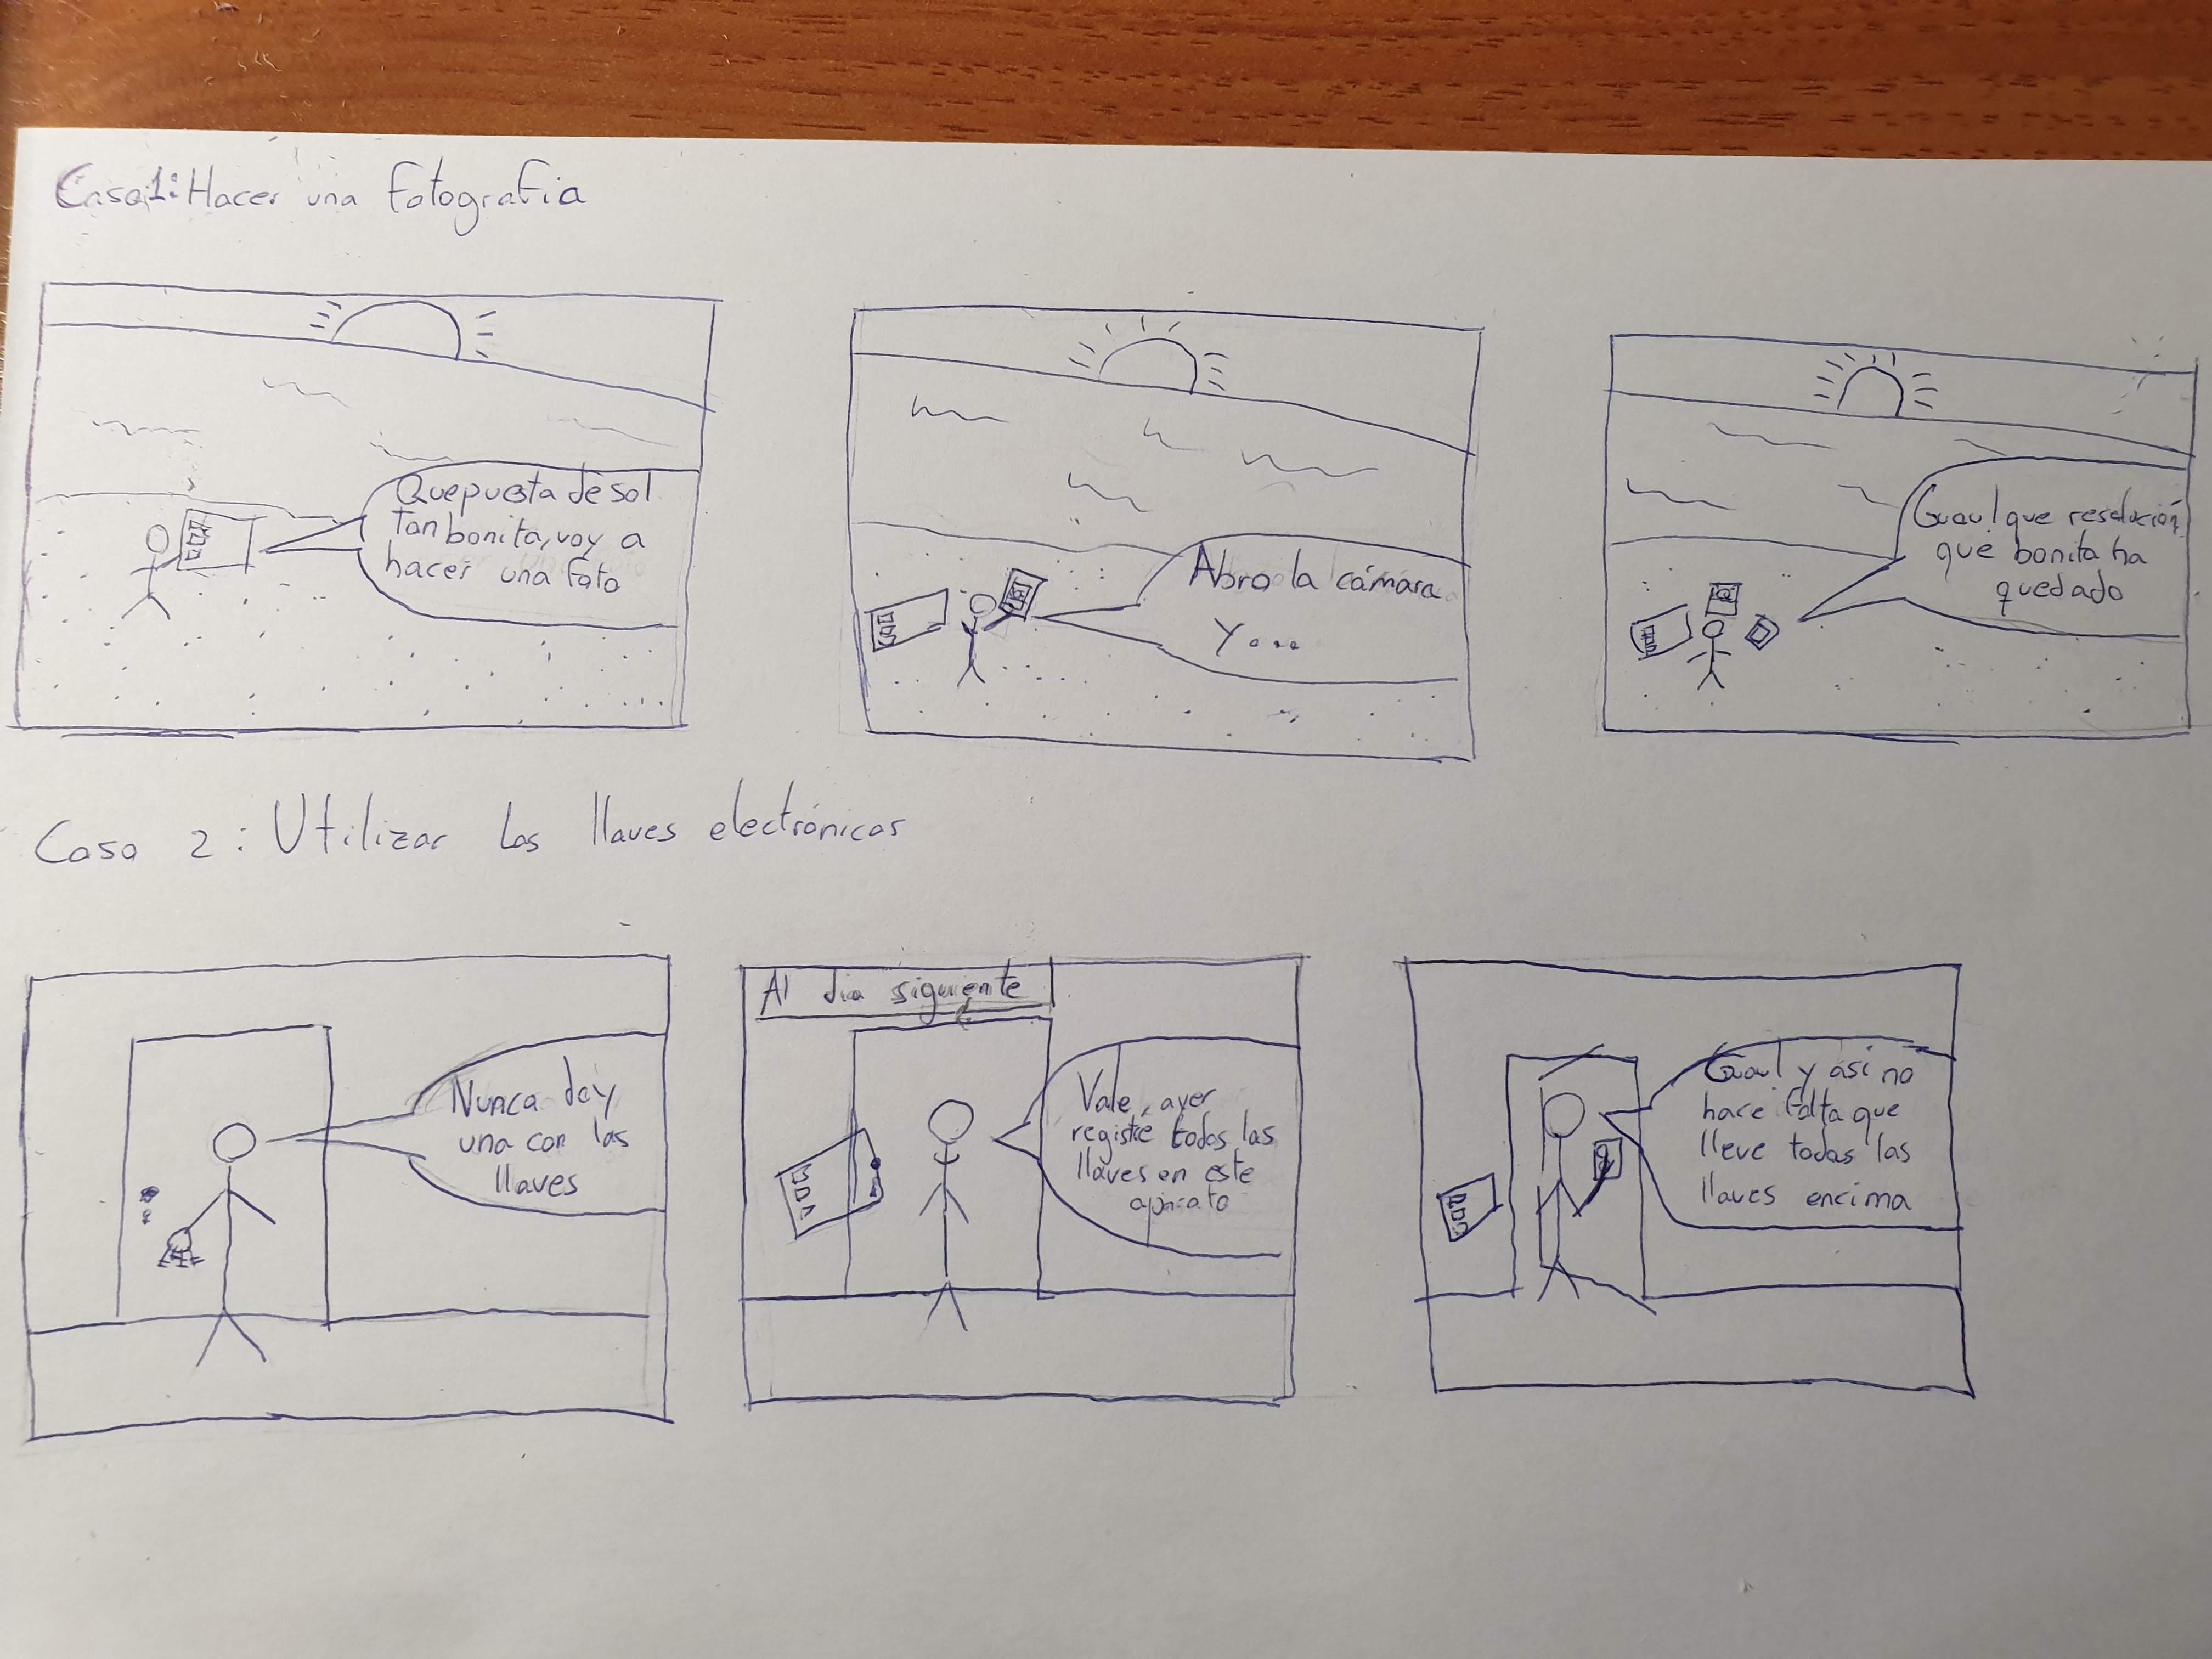 Caso 1: Hacer una fotografia
Que puesta de sol
tan bonita, voy a
hacer una foto
Abro la cámara
Y ...
Guau! que resolución
que bonita ha
quedado
Caso 2: Utilizar las llaves electrónicas
Nunca doy
una con las
llaves
Al dia siguiente
Vale, ayer
registré todas las
llaves en este
aparato
Guau! Y asi no
hace falta que
lleve todas las
llaves encima